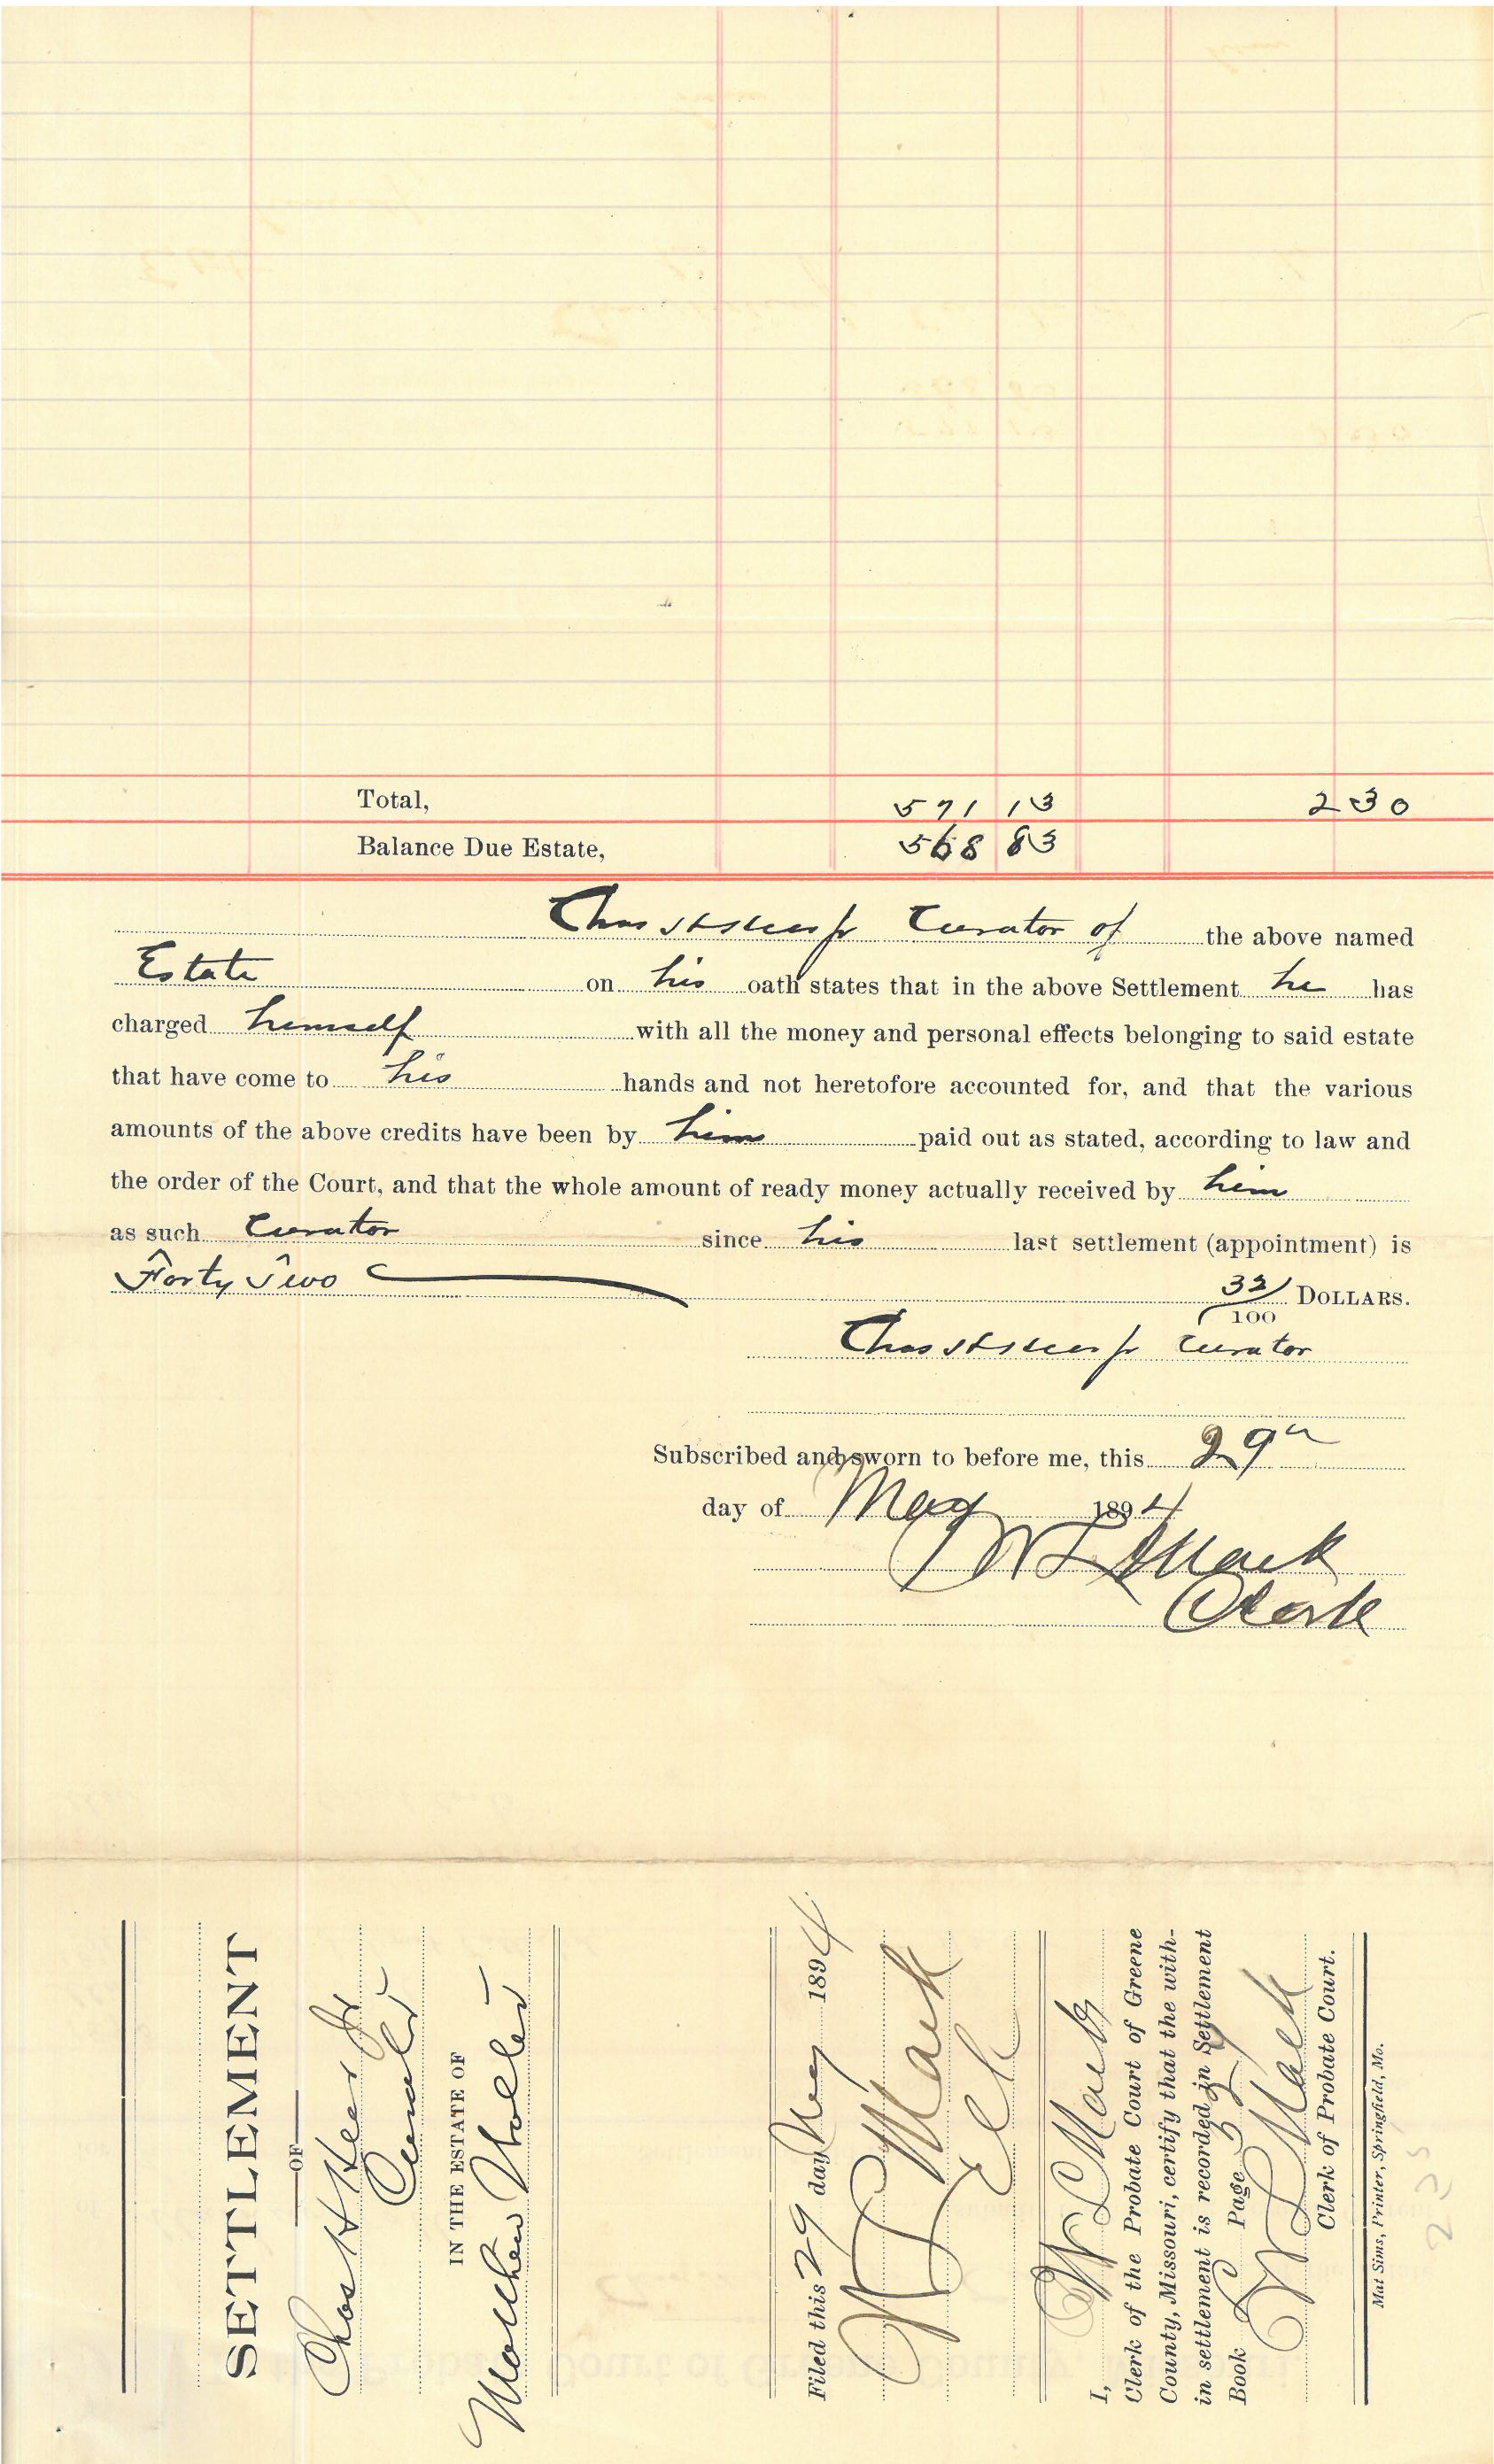 Total, 571 13 2 30
Balance Due Estate, 568 83
Chas H Heer Jr Curator of the above named
Estate on his oath states that in the above Settlement he has
charged himself with all the money and personal effects belonging to said estate
that have come to his hands and not heretofore accounted for, and that the various
amounts of the above credits have been by him paid out as stated, according to law and
the order of the Court, and that the whole amount of ready money actually received by him
as such Curator since his last settlement (appointment) is
Forty Two 32/100 DOLLARS.
Chas H Heer Jr Curator
Subscribed and sworn to before me, this 29th
day of May 1894
W L Mack
Clerk
SETTLEMENT
OF
Chas H Heer Jr
Curator
IN THE ESTATE OF
Matthew
Filed this 29 day May 1894
W L Mack
Clk
I, W L Mack
Clerk of the Probate Court of Greene
County, Missouri, certify that the with-
in settlement is recorded in Settlement
Book Page
W L Mack
Clerk of Probate Court.
Mat Sims, Printer, Springfield, Mo.